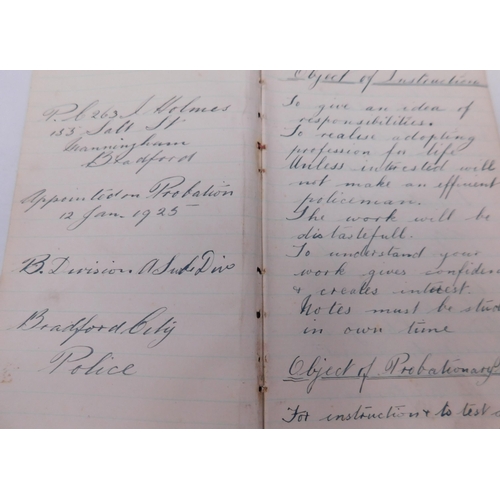 P.C 263 J. Holmes
153 Salt St
Manningham
Bradford
Appointed on Probation
12 Jan. 1925
B. Division A Sub Div
Bradford City
Police
Object of Instruction
To give an idea of
responsibilities.
To realise adopting
profession for life
Unless interested will
not make an efficient
policeman.
The work will be
distastefull.
To understand your
work gives confiden
& creates interest.
Notes must be stud
in own time
Object of Probationary
For instruction & to test